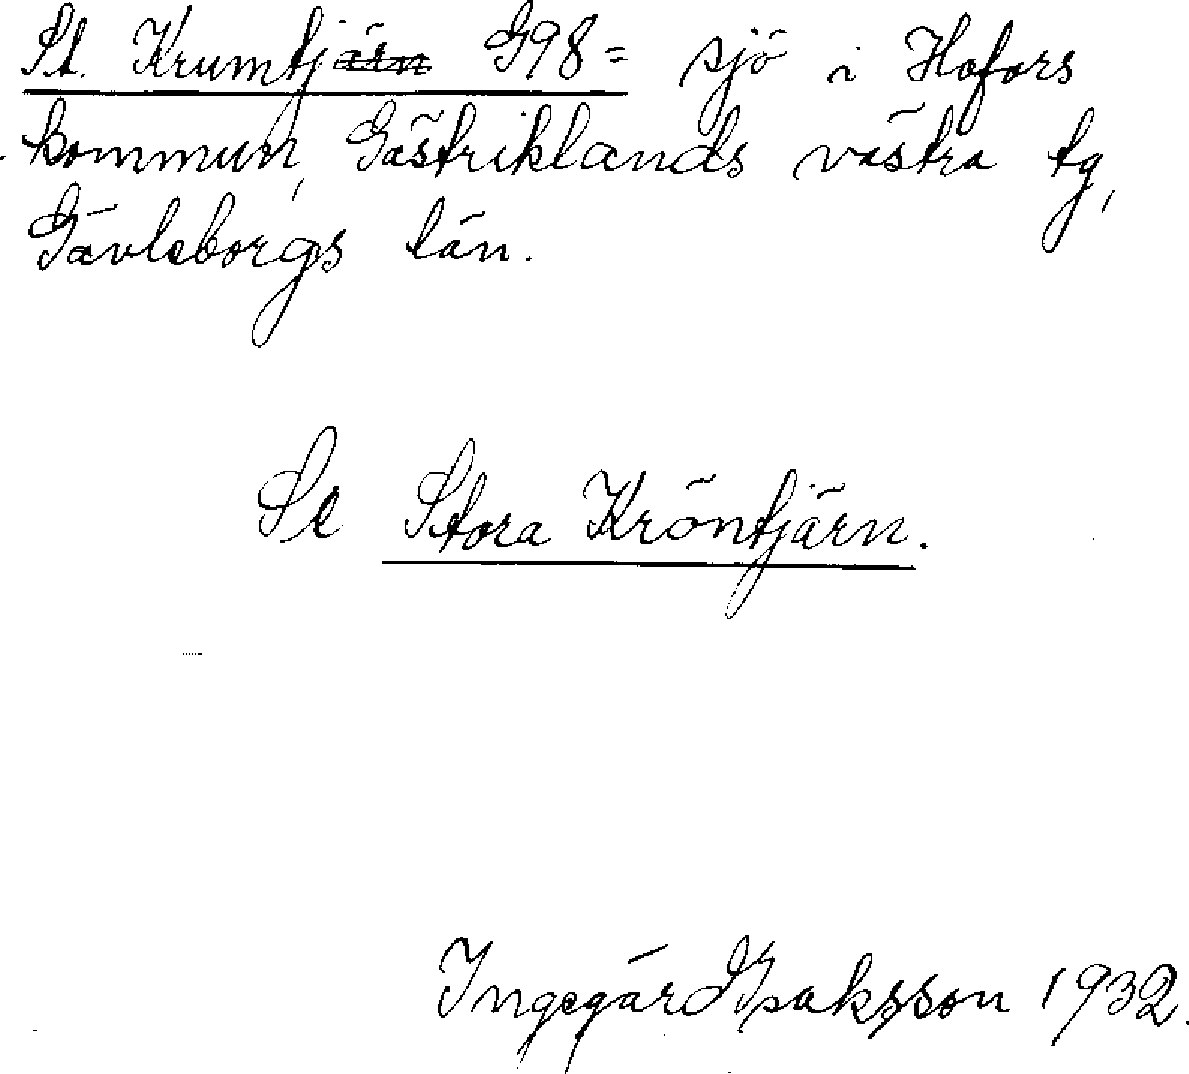 St. Krumtjärn G98 = sjö i Hofors
kommun, Gästriklands västra tg,
Gävleborgs län.
Se Stora Kröntjärn.
Ingegärd Isaksson 1932.